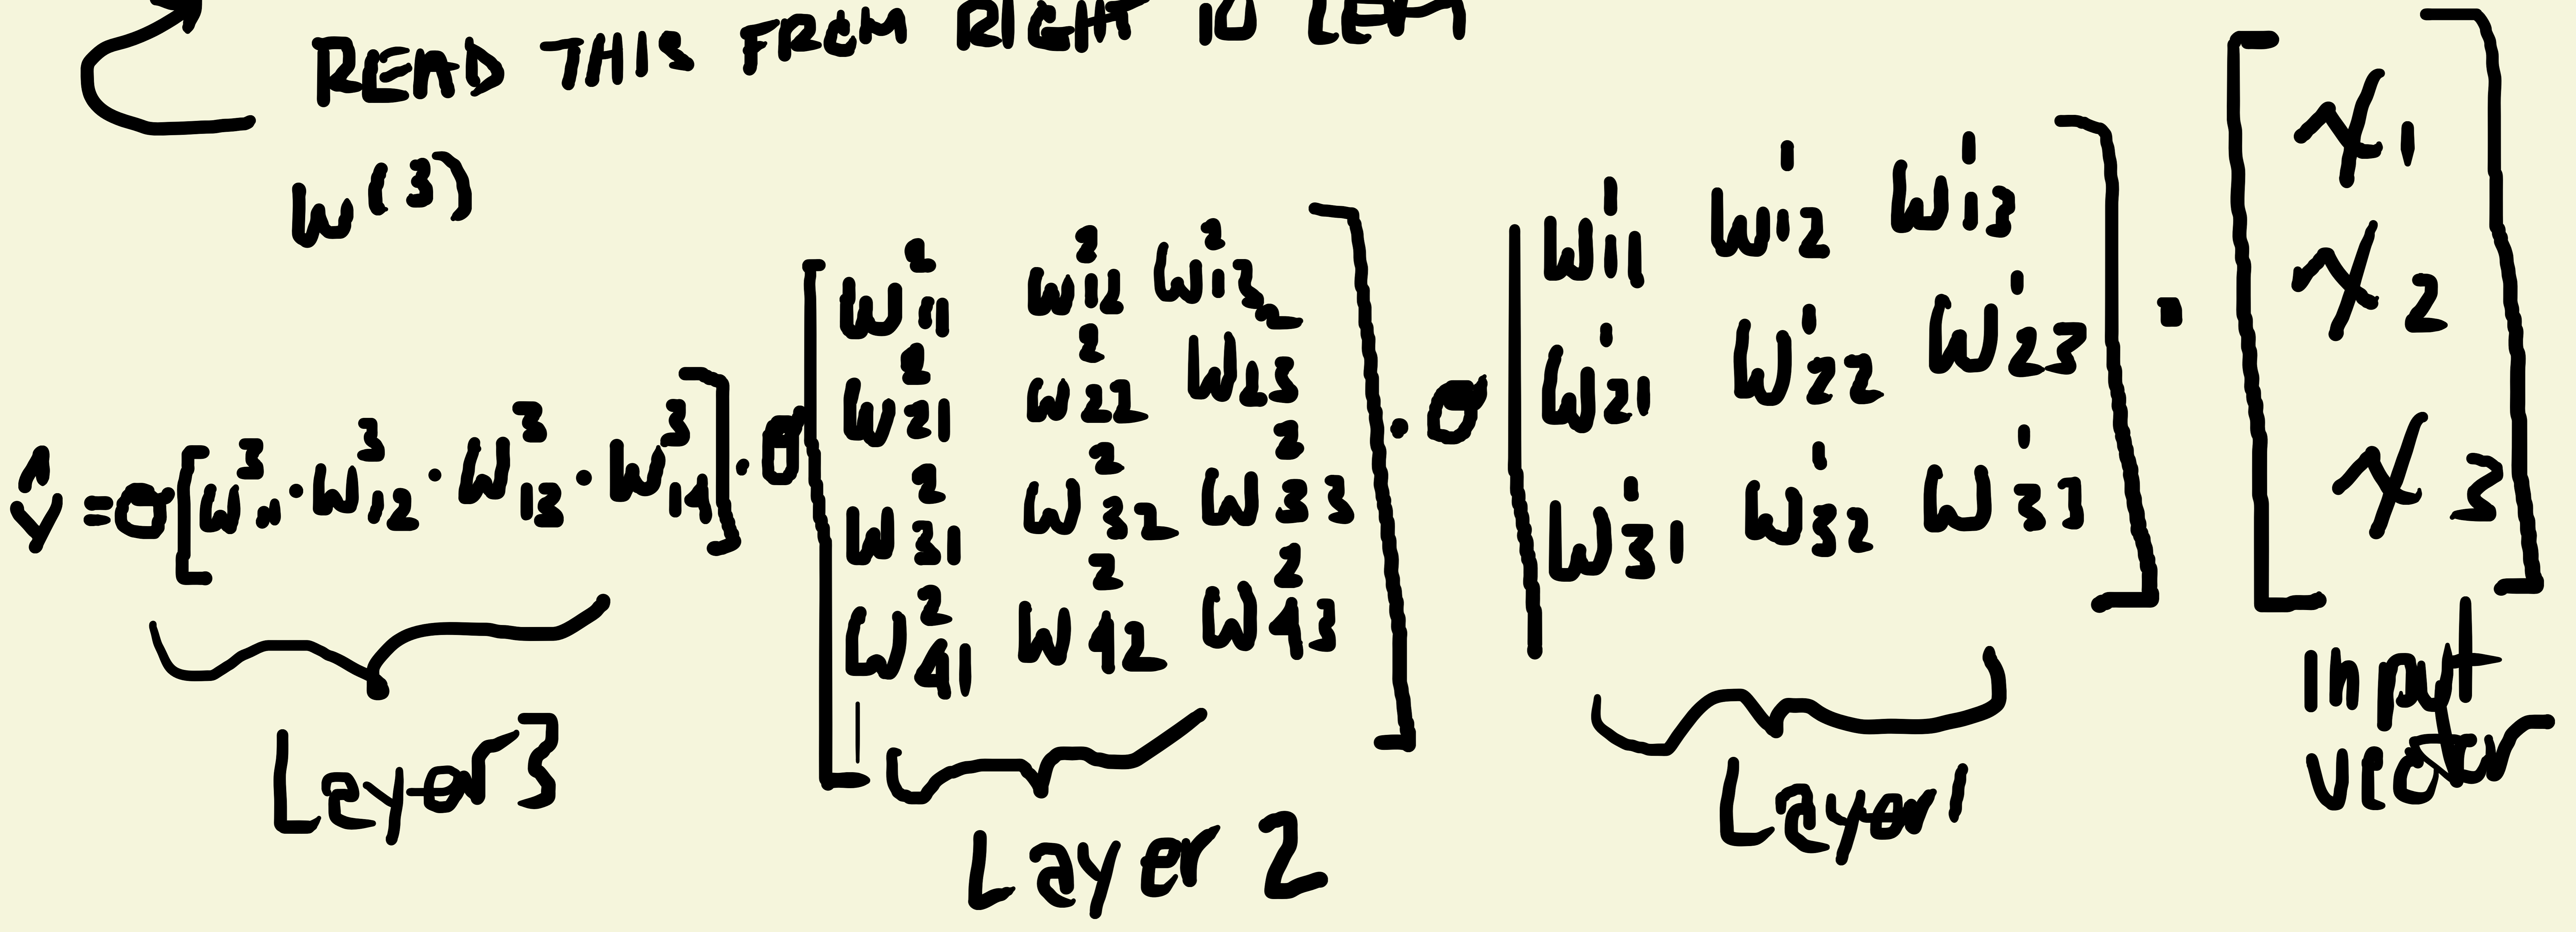 READ THIS FROM RIGHT TO LEFT
W⁽³⁾
ŷ = σ[W³₁₁ · W³₁₂ · W³₁₃ · W³₁₄] · σ[W²₁₁ W²₁₂ W²₁₃
W²₂₁ W²₂₂ W²₂₃
W²₃₁ W²₃₂ W²₃₃
W²₄₁ W²₄₂ W²₄₃] · σ[W¹₁₁ W¹₁₂ W¹₁₃
W¹₂₁ W¹₂₂ W¹₂₃
W¹₃₁ W¹₃₂ W¹₃₃] · [x₁
x₂
x₃]
Layer 3
Layer 2
Layer 1
Input
vector